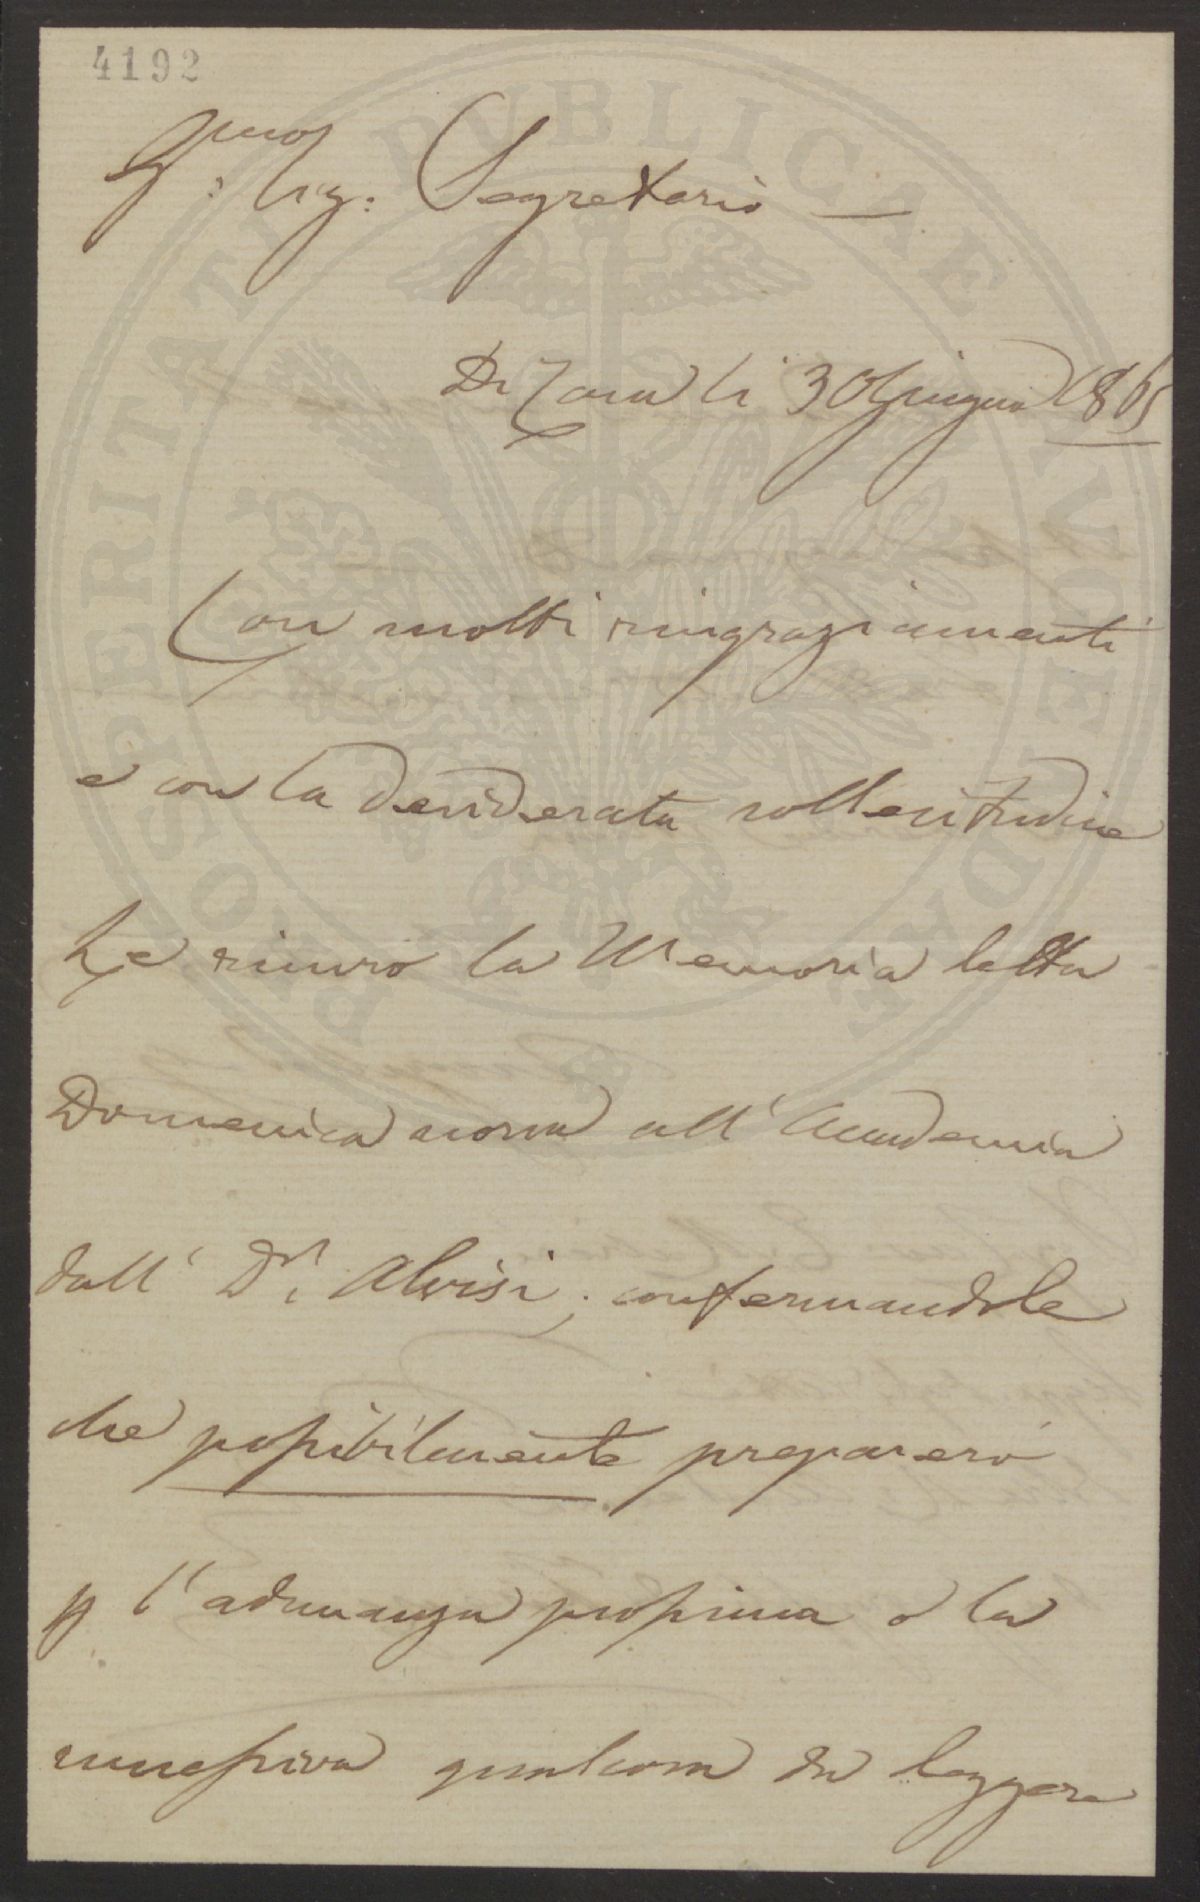 4192
Illmo: Sig: Segretario —
Di Casa li 30 Giugno 1865
Con molti ringraziamenti
e con la desiderata sollecitudine
Le rinvio la Memoria letta
Domenica scorsa all'Accademia
dall' Dr. Alvisi; confermandole
che possibilmente preparerò
p l'adunanza prossima o la
successiva qualcosa da leggere
PROSPERITATI PUBLICAE AVGENDAE